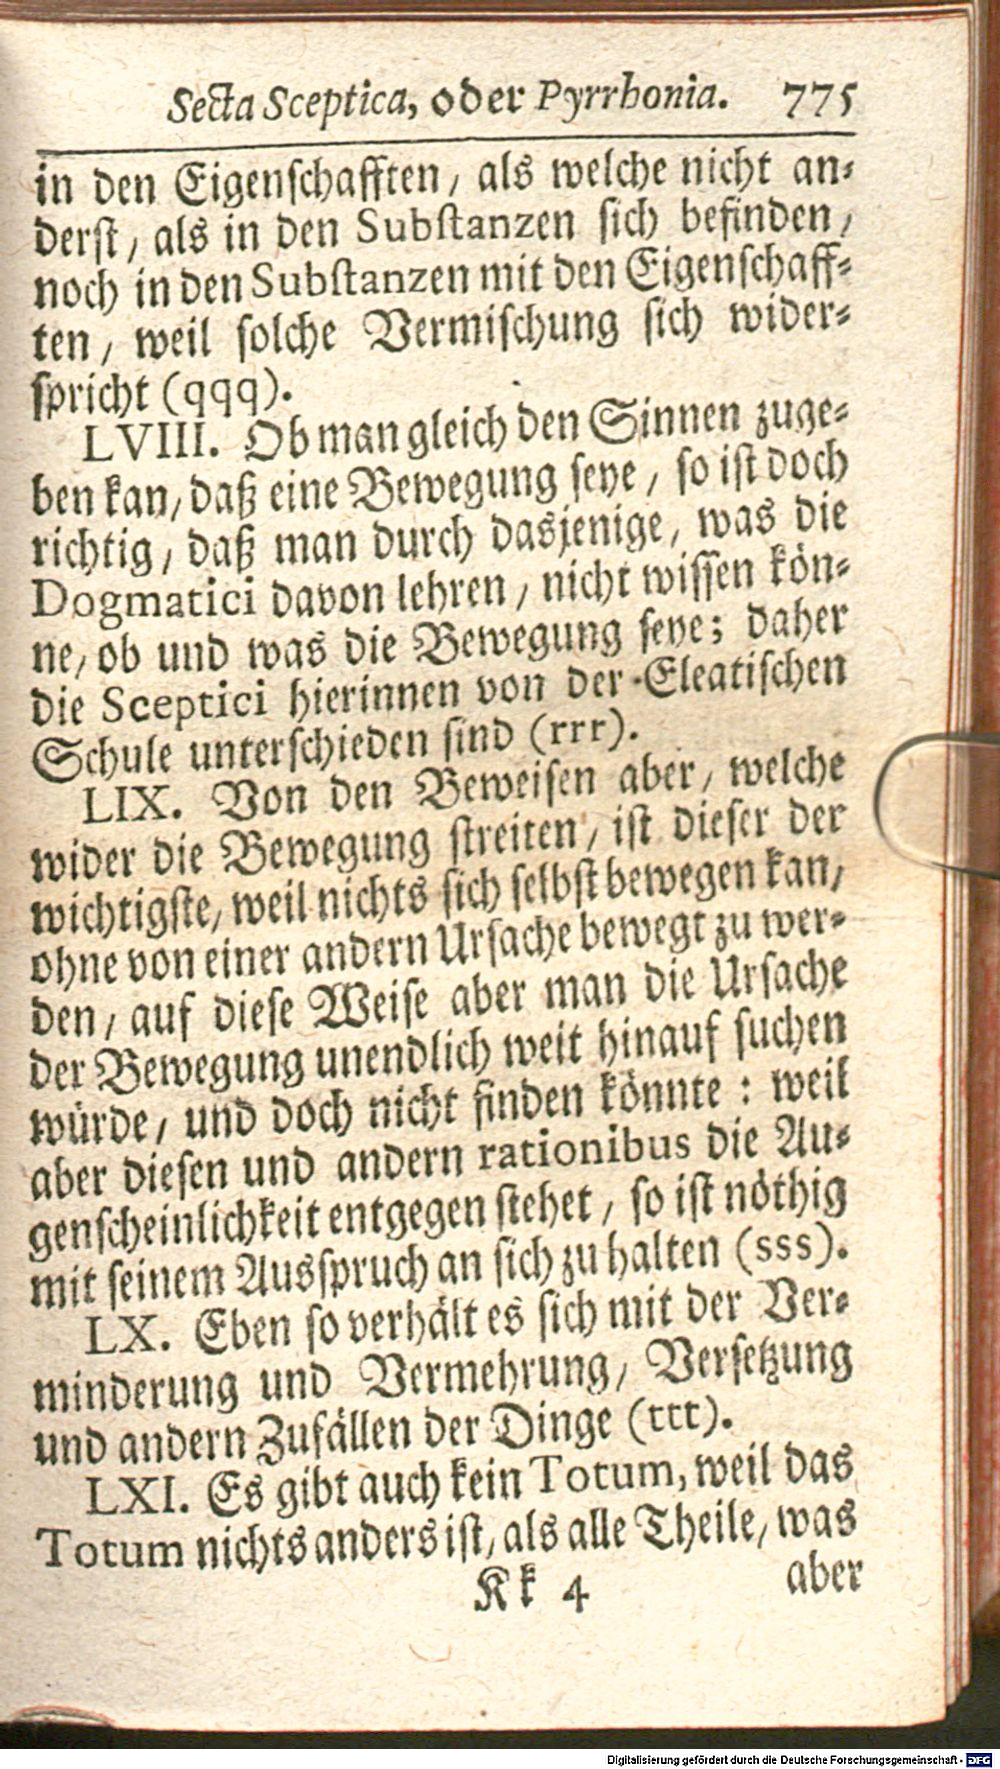 Secta Sceptica, oder Pyrrhonia. 775
in den Eigenschafften, als welche nicht an-
derst, als in den Substanzen sich befinden,
noch in den Substanzen mit den Eigenschaff-
ten, weil solche Vermischung sich wider-
spricht (qqq).
LVIII. Ob man gleich den Sinnen zuge-
ben kan, daß eine Bewegung seye, so ist doch
richtig, daß man durch dasjenige, was die
Dogmatici davon lehren, nicht wissen kön-
ne, ob und was die Bewegung seye; daher
die Sceptici hierinnen von der Eleatischen
Schule unterschieden sind (rrr).
LIX. Von den Beweisen aber, welche
wider die Bewegung streiten, ist dieser der
wichtigste, weil nichts sich selbst bewegen kan,
ohne von einer andern Ursache bewegt zu wer-
den, auf diese Weise aber man die Ursache
der Bewegung unendlich weit hinauf suchen
würde, und doch nicht finden könnte: weil
aber diesen und andern rationibus die Au-
genscheinlichkeit entgegen stehet, so ist nöthig
mit seinem Ausspruch an sich zu halten (sss).
LX. Eben so verhält es sich mit der Ver-
minderung und Vermehrung, Versetzung
und andern Zufällen der Dinge (ttt).
LXI. Es gibt auch kein Totum, weil das
Totum nichts anders ist, als alle Theile, was
Kk 4 aber
Digitalisierung gefördert durch die Deutsche Forschungsgemeinschaft - DFG